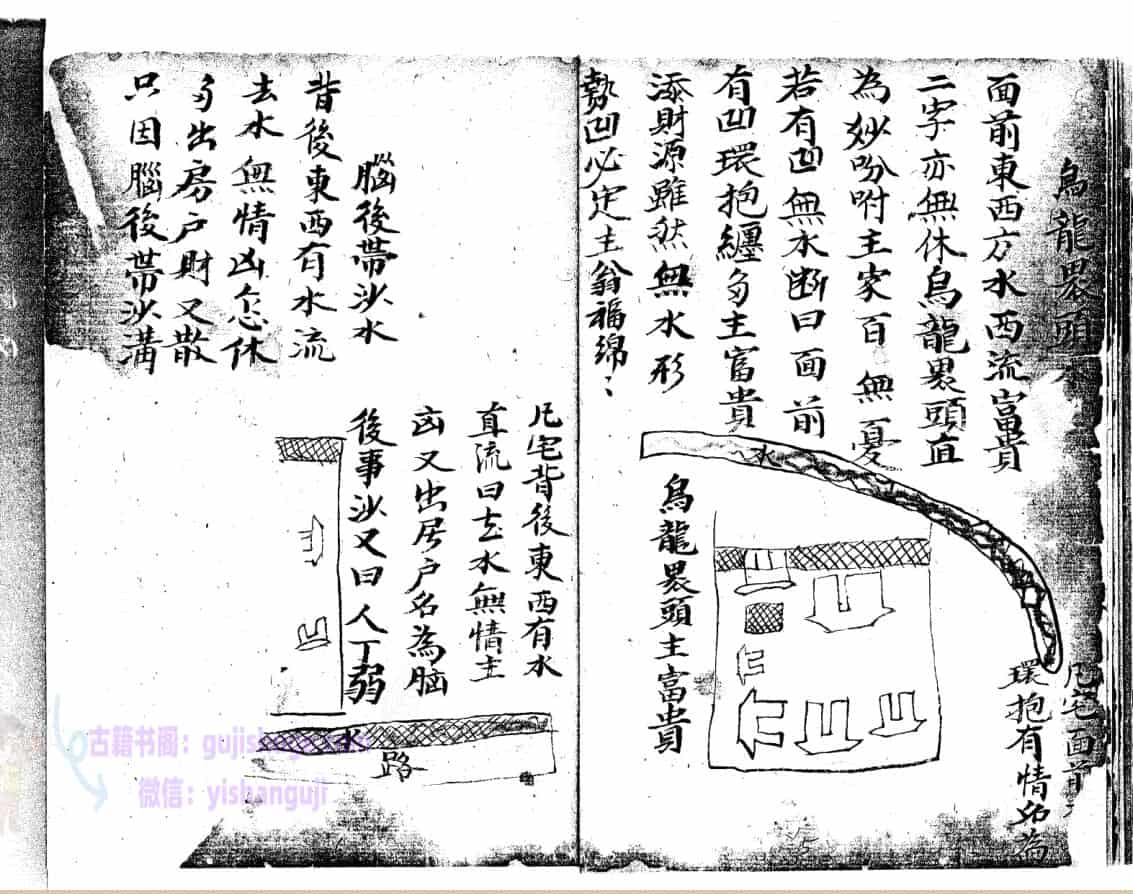 烏龍裹頭水
面前東西方水西流富貴
二字亦無休烏龍裹頭直
為妙吩咐主家百無憂
若有凹無水断曰面前
有凹環抱纏多主富貴
添財源雖然無水形
勢凹必定主翁福綿〻
水
烏龍裹頭主富貴
凡宅面前
環抱有情名為
腦後帶沙水
背後東西有水流
去水無情凶怎休
多出房户財又散
只因腦後帶沙溝
凡宅背後東西有水
直流曰去水無情主
凶又出居户名為脑
後事沙又曰人丁弱
水
路
古籍书阁：gujishuge.com
微信：yishanguji